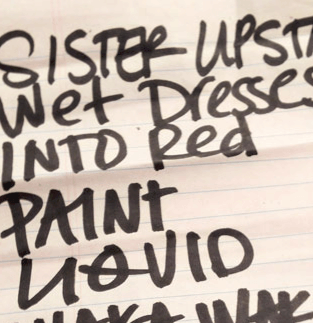 SISTER UPST
Wet Dresses
INTO Red
PAINT
LIQUID
WAKA WAK